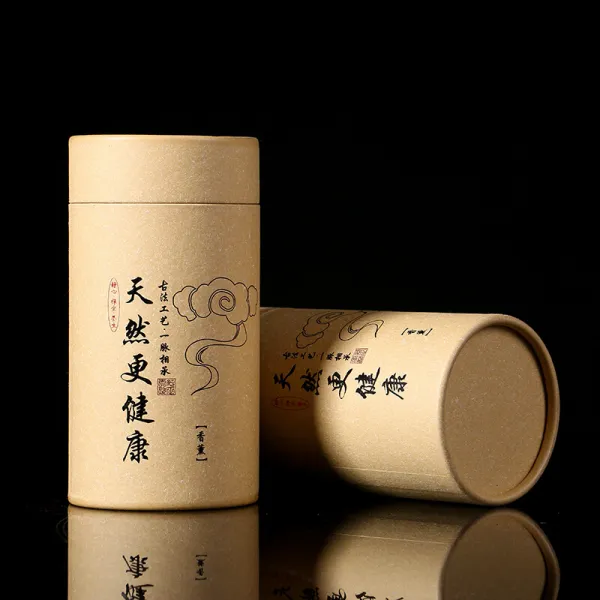 天然更健康
古法工艺·一脉相承
【香薰】
古法工艺·一脉相承
天然更健康
【香薰】